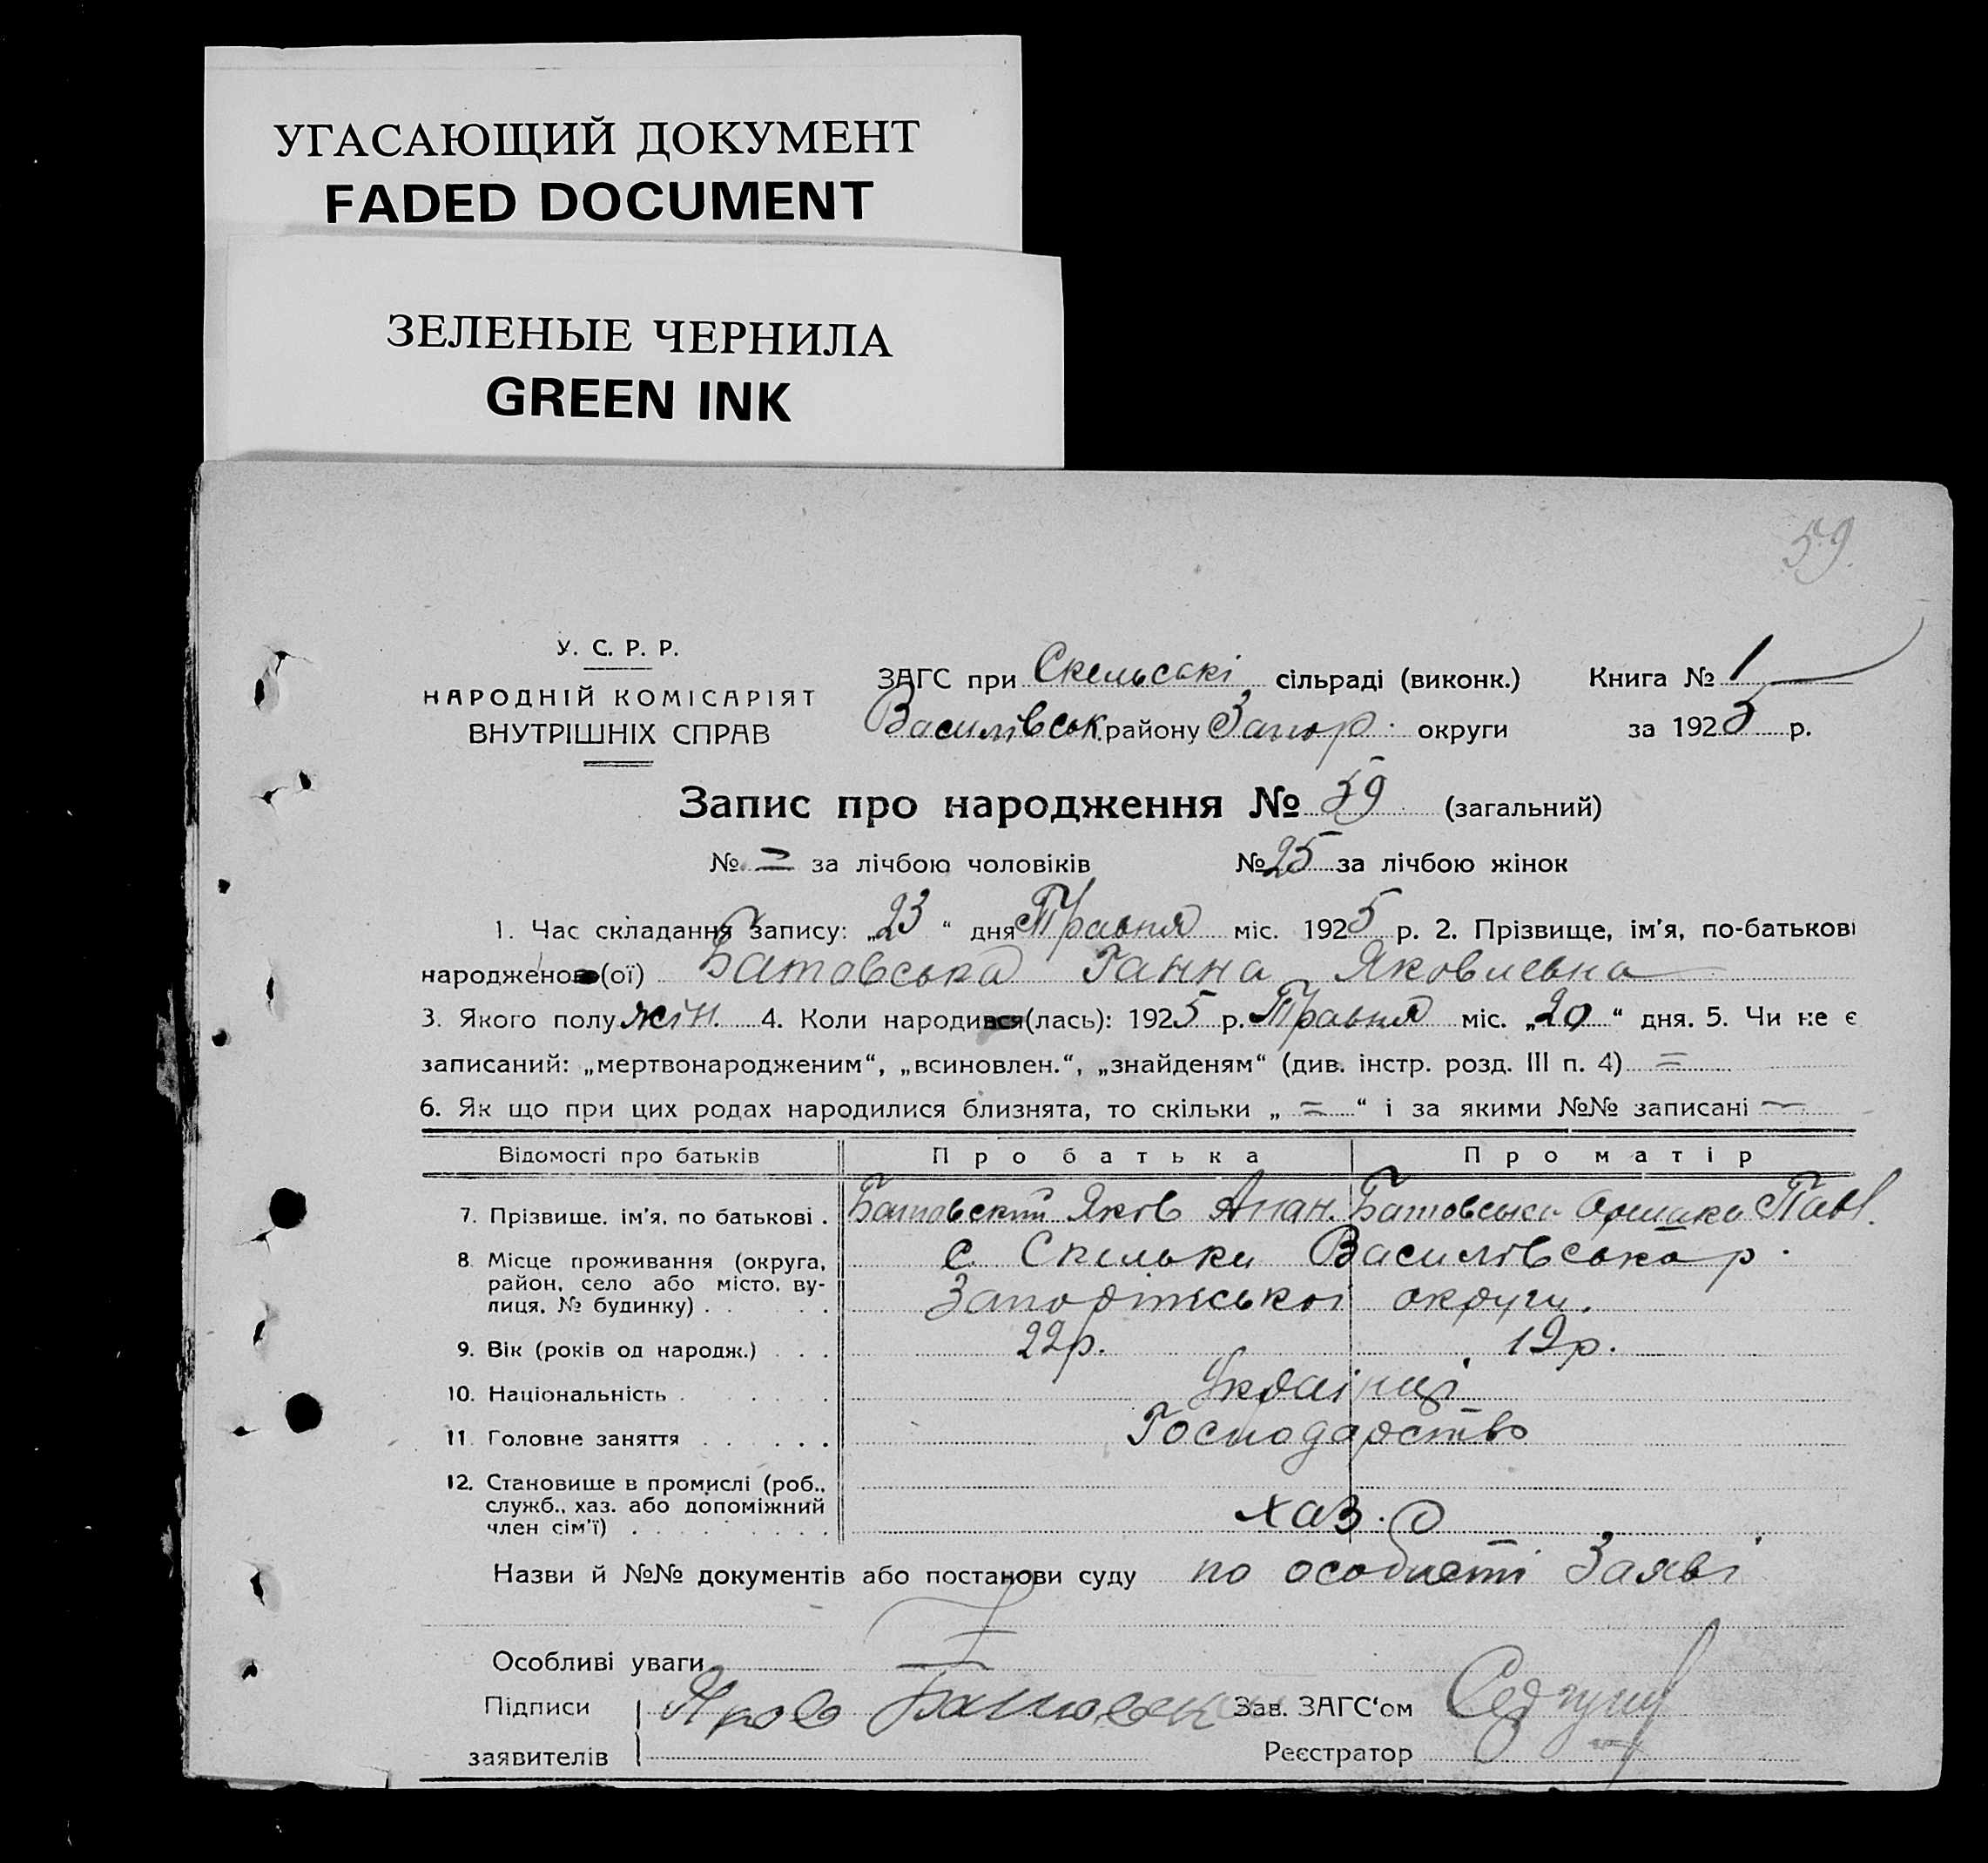 УГАСАЮЩИЙ ДОКУМЕНТ
FADED DOCUMENT
ЗЕЛЕНЫЕ ЧЕРНИЛА
GREEN INK
59.
У. С. Р. Р.
НАРОДНІЙ КОМІСАРІЯТ
ВНУТРІШНІХ СПРАВ
ЗАГС при Скельські сільраді (виконк.) Книга № 1
Василівськ. району Запор. округи за 1925 р.
Запис про народження № 59 (загальний)
№ = за лічбою чоловіків № 25 за лічбою жінок
1. Час складання запису: „23“ дня Травня міс. 1925 р. 2. Прізвище, ім'я, по-батькові
народженого(ої) Батовська Ганна Яковлевна
3. Якого полу жін. 4. Коли народився(лась): 1925 р. Травня міс. „20“ дня. 5. Чи не є
записаний: „мертвонародженим“, „всиновлен.“, „знайденям“ (див. інстр. розд. III п. 4) =
6. Як що при цих родах народилися близнята, то скільки „ = “ і за якими №№ записані —
Відомості про батьків Про батька Про матір
7. Прізвище, ім'я, по батькові . Батовский Яків Анан. Батовська Павл.
8. Місце проживання (округа, район, село або місто, вулиця, № будинку) . . . . с. Скельки Василівська р.
Запоріжської округи.
9. Вік (років од народж.) . . . 22р. 19р.
10. Національність . . . . . Українці
11. Головне заняття . . . . . Господарство
12. Становище в промислі (роб., служб., хаз. або допоміжний член сім'ї) . . . . . . . хаз.
Назви й №№ документів або постанови суду по особисті Заяві
Особливі уваги
Підписи Яков Батовск Зав. ЗАГС'ом
заявителів Реєстратор